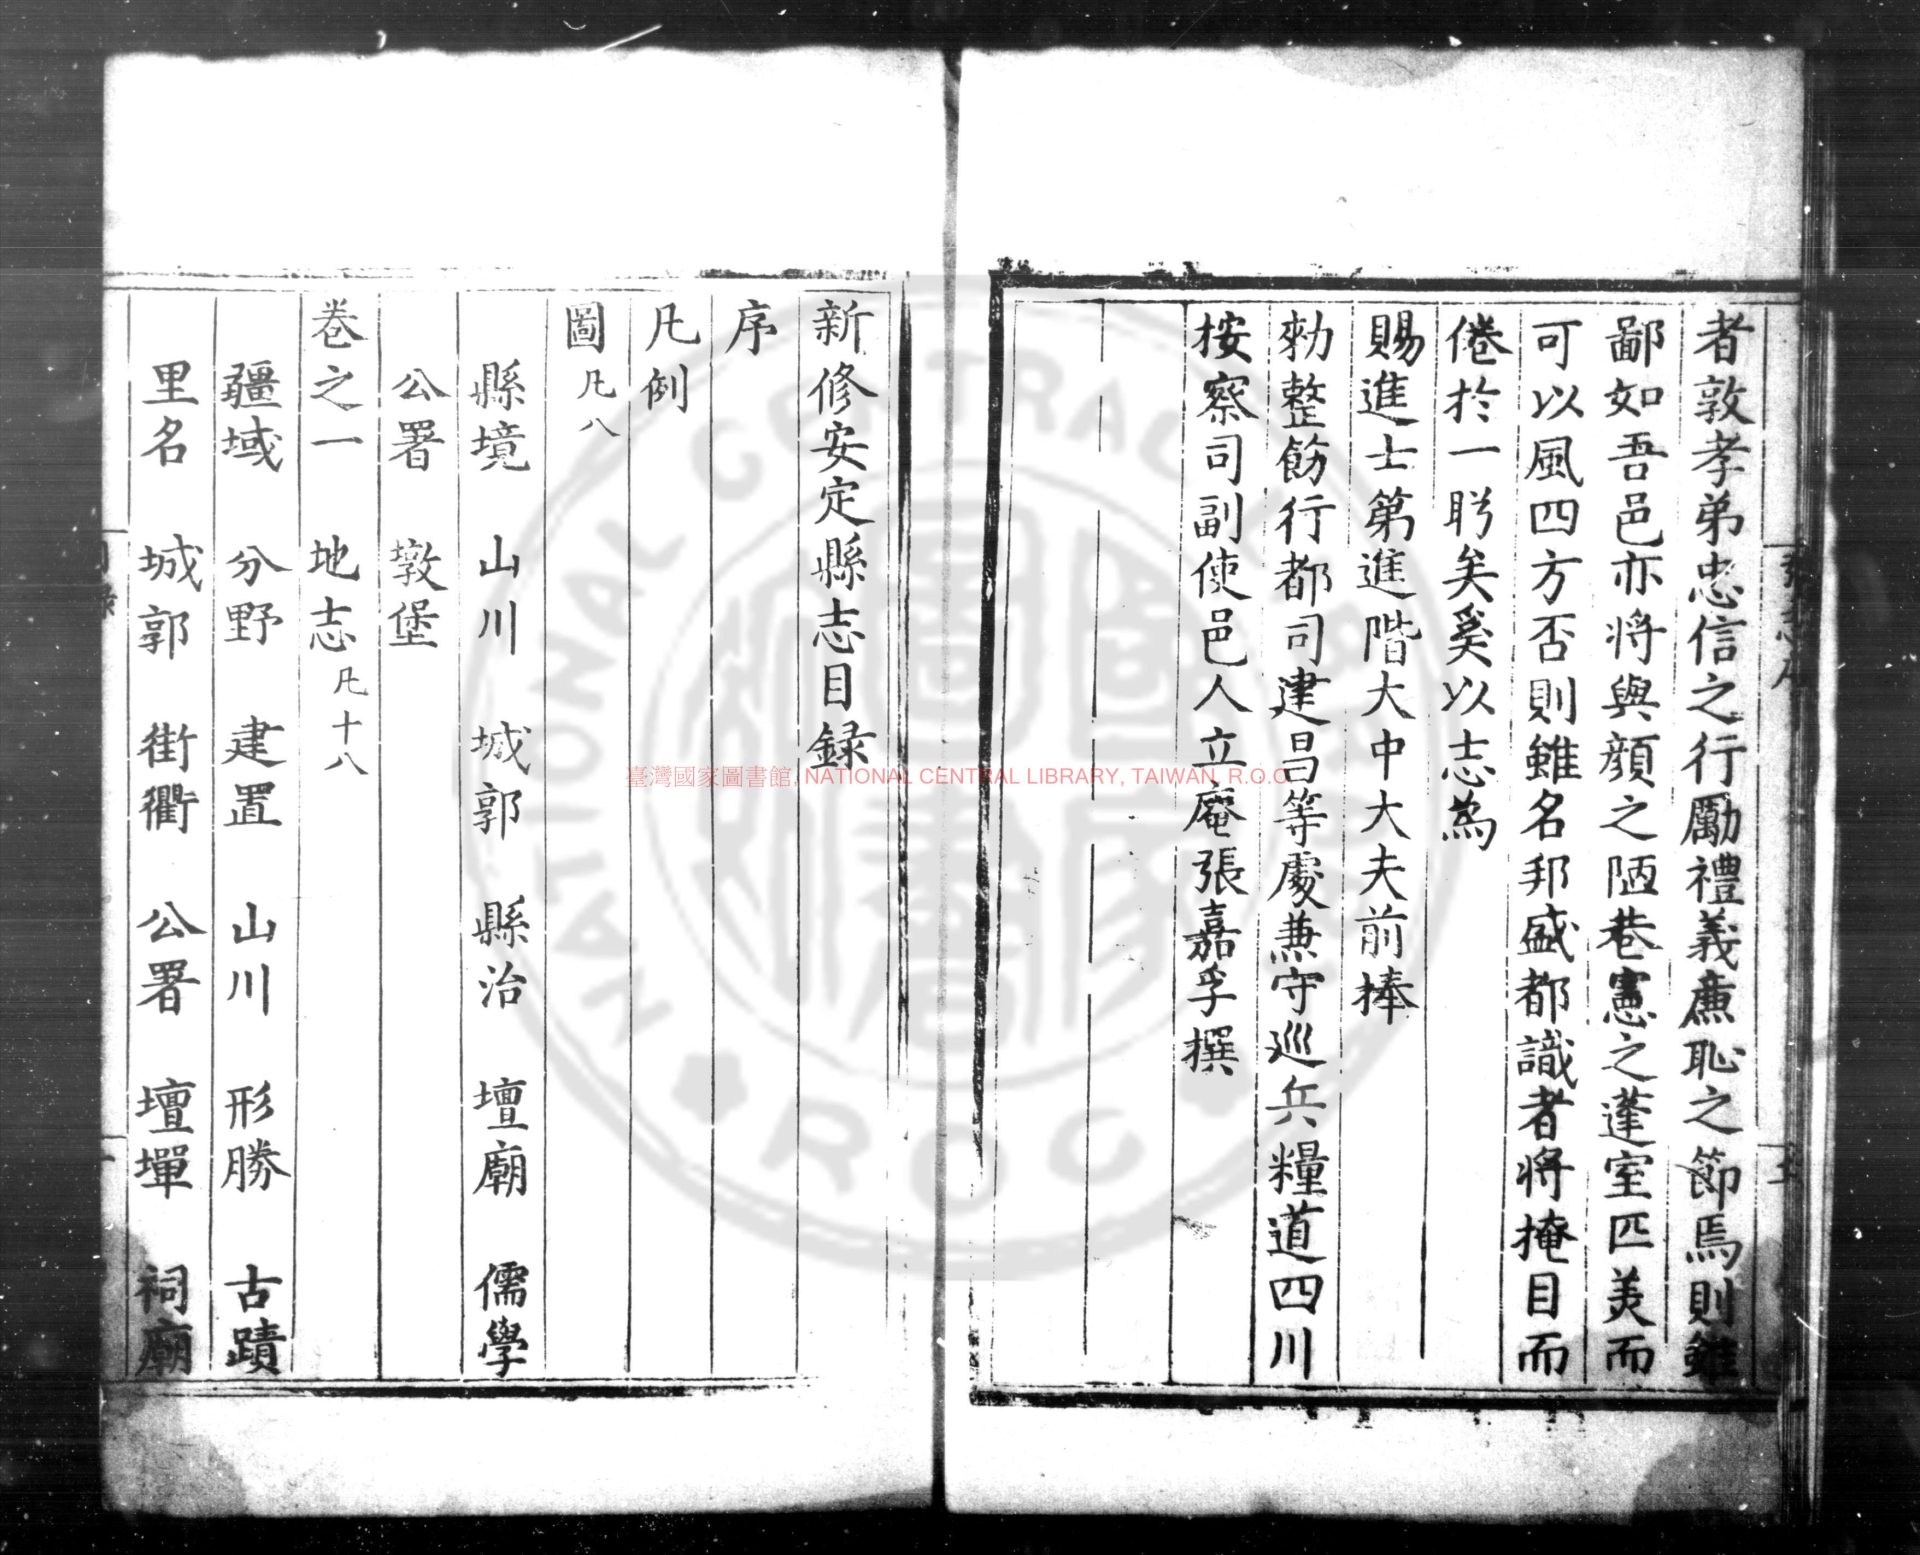 者敦孝弟忠信之行勵禮義廉恥之節焉則雖
鄙如吾邑亦将與顔之陋巷憲之蓬室匹美而
可以風四方否則雖名邦盛都識者将掩目而
倦於一盻矣奚以志為
賜進士第進階大中大夫前捧
勑整飭行都司建昌等處兼守巡兵糧道四川
按察司副使邑人立庵張嘉孚撰
新修安定縣志目録
序
凡例
圖凡八
縣境 山川 城郭 縣治 壇廟 儒學
公署 墩堡
卷之一 地志凡十八
疆域 分野 建置 山川 形勝 古蹟
里名 城郭 街衢 公署 壇墠 祠廟
臺灣國家圖書館, NATIONAL CENTRAL LIBRARY, TAIWAN, R.O.C
NATIONAL CENTRAL R.O.C